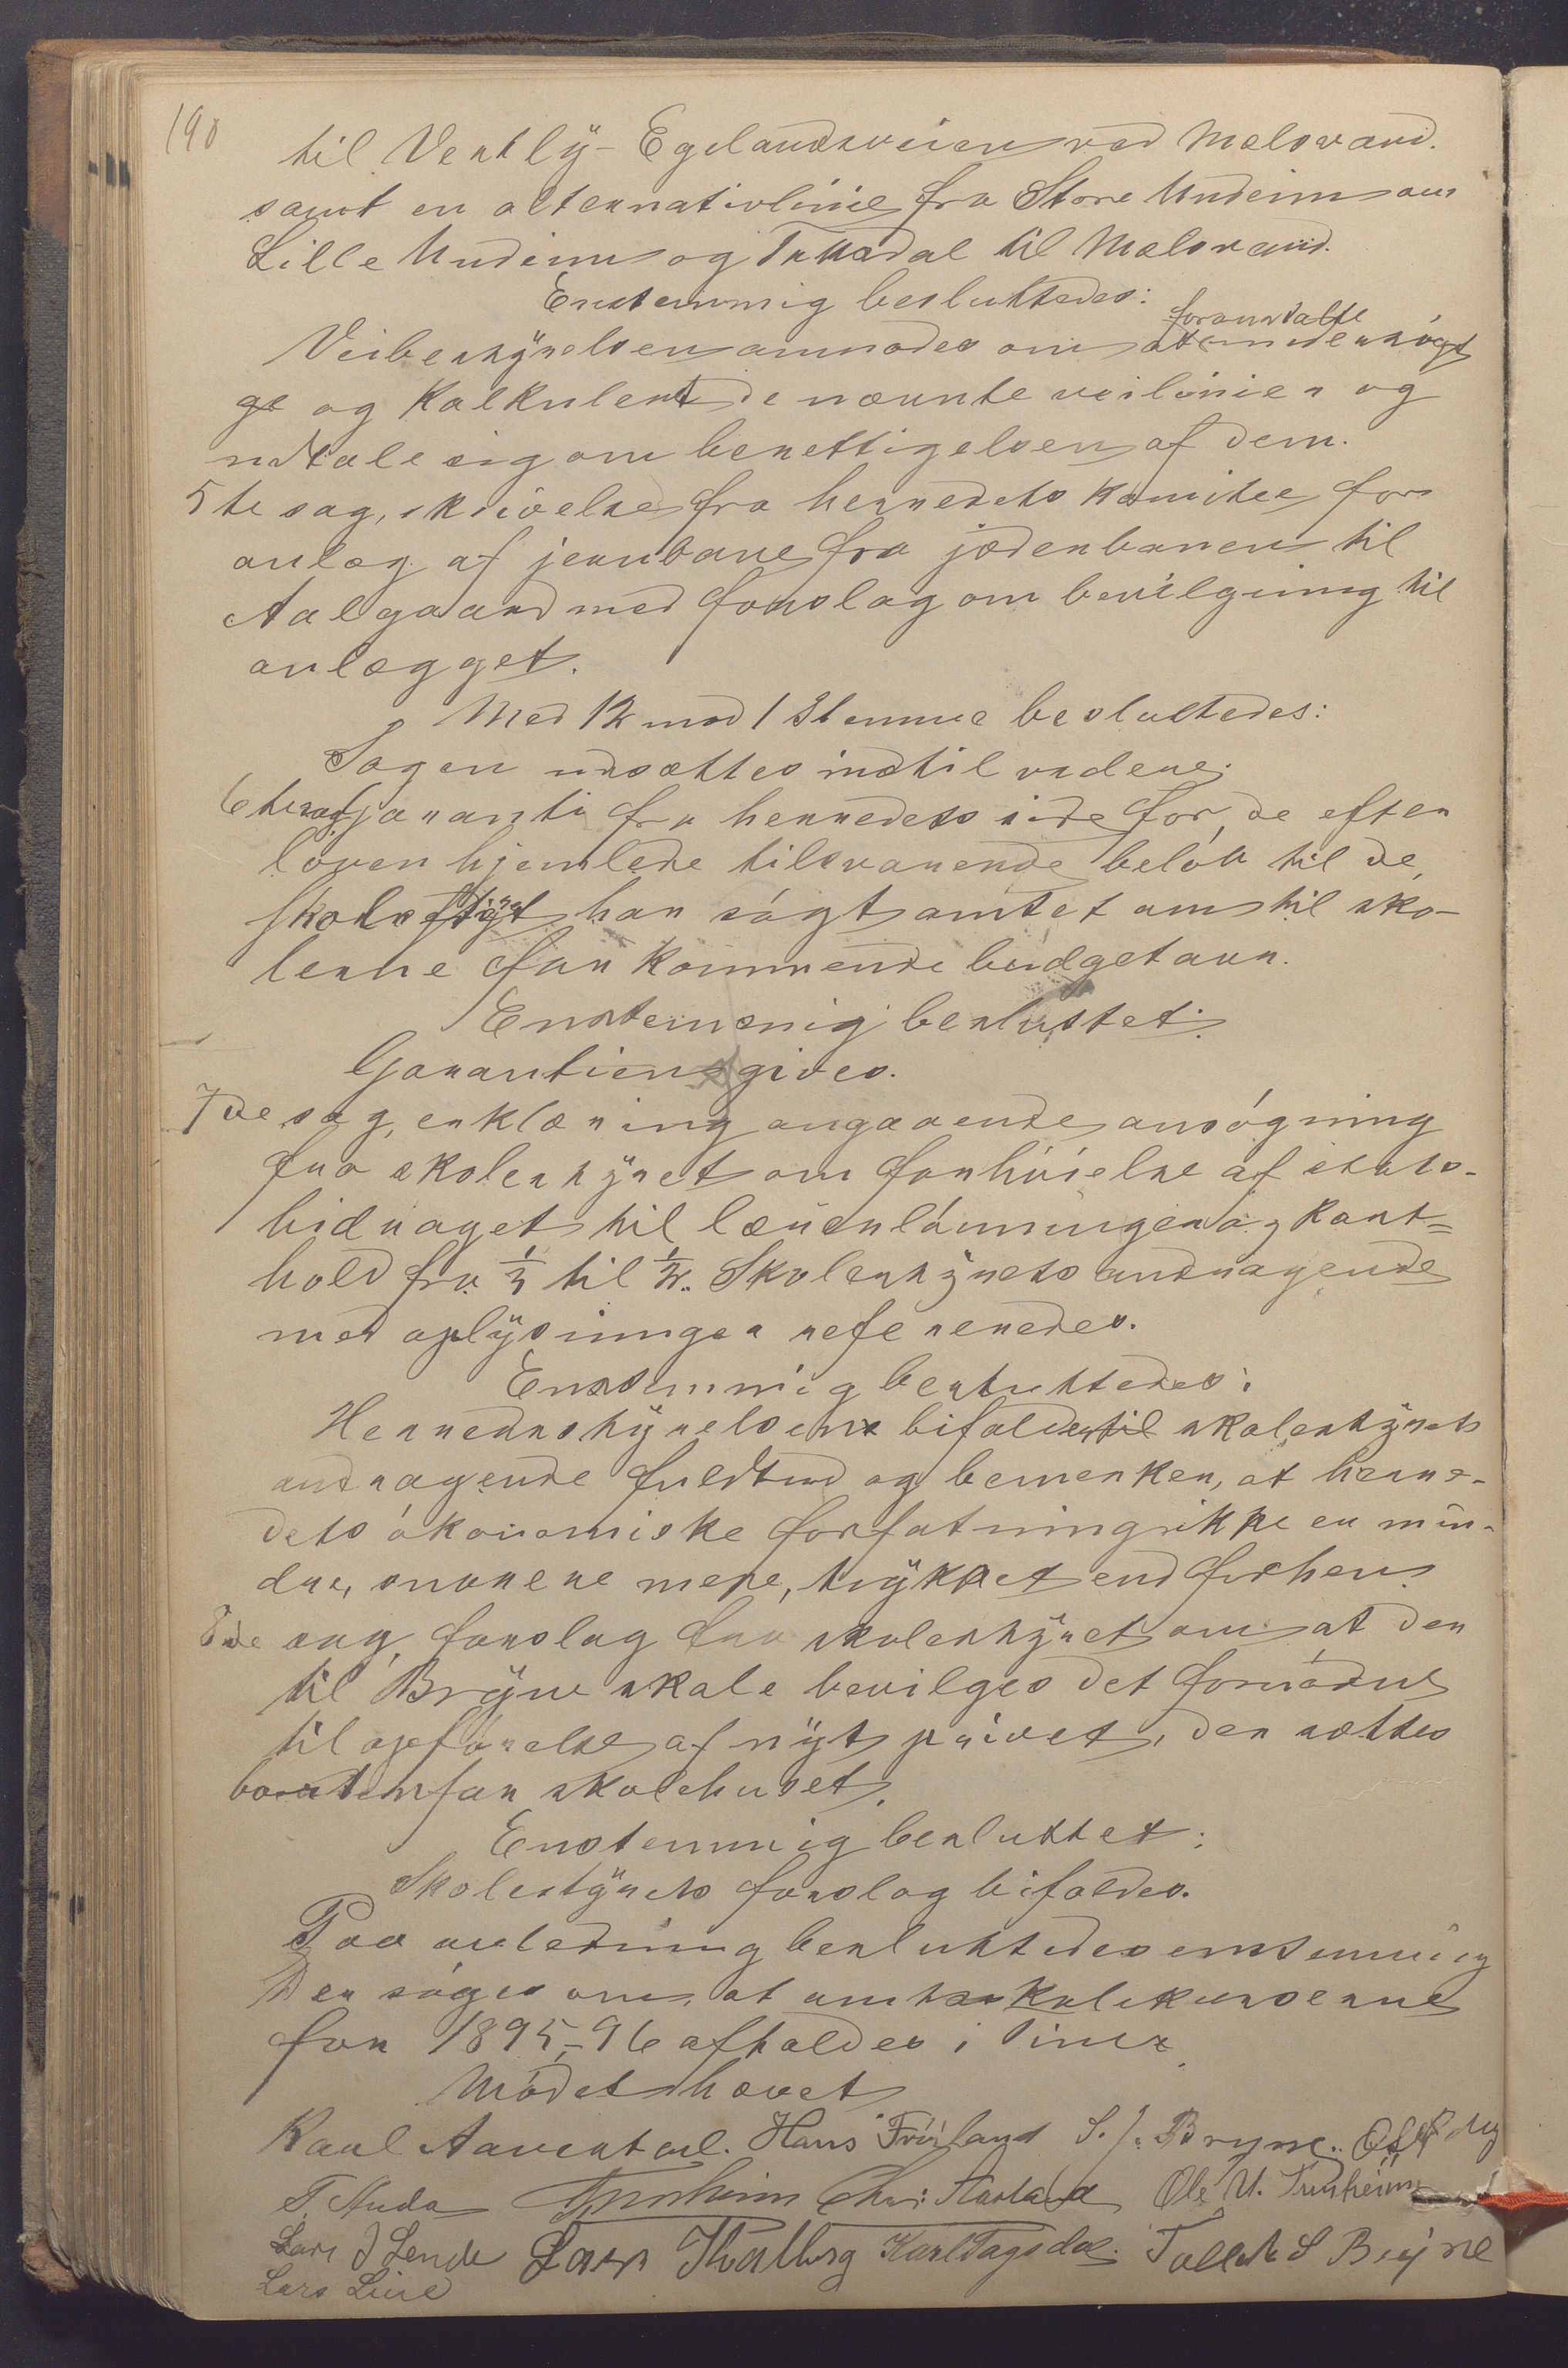 190
til Vestly-Egelandsveien ved Melsvand.
samt en alternativlinie fra Store Undeim om
Lille Undeim og Tussdal til Melsvand.
Enstemmig besluttedes:
foranstalte
Veibestyrelsen anmodes om at undersøgt
ge og kalkulert de nævnte veilinier og
udtale sig om berettigelsen af dem.
5te sag, skrivelse fra herredets komitee for
anlæg af jernbane fra jæderbanen til
Aalgaard med forslag om bevilgning til
anlægget.
Med 12 mod 1 Stemme besluttedes:
Sagen udsættes indtil videre.
6te sag garanti fra herredets side for de efter
loven hjemlede tilsvarende beløb til de,
skolestyret har søgt amtet om til sko-
lerne for kommende budgetaar.
Enstemmig besluttet:
Garantien gives.
7de sag, erklæring angaaende ansøgning
fra skolestyret om forhøielse af stats-
bidraget til lærerlønningen og kost=
hold fra 1/3 til 1/2. Skolestyrets andragende
med oplysninger refereredes.
Enstemmig besluttedes:
Herredsstyrelsen bifalder til skolestyrets
andragende fuldtud og bemerker, at herre-
dets økonomiske forfatning ikke er min-
dre, snarere mere, trykket end førhen.
8de sag, forslag fra skolestyret om at der
til Bryne skole bevilges det fornødne
til opførelse af nyt privet, der sættes
bortenfor skolehuset.
Enstemmig besluttet:
Skolestyrets forslag bifaldes.
Paa anledning besluttedes enstemmig
Der søges om, at amtsskolekurserne
for 1895-96 afholdes i Time.
Mødet hævet
Karl Aarrestad. Hans Frøiland S. J. Bryne.
T. Auda Chr: Ole U. Tunheim
Lars J Lende Lars Thu Karl Tagsdal. Tollek S Bryne
Lars Line